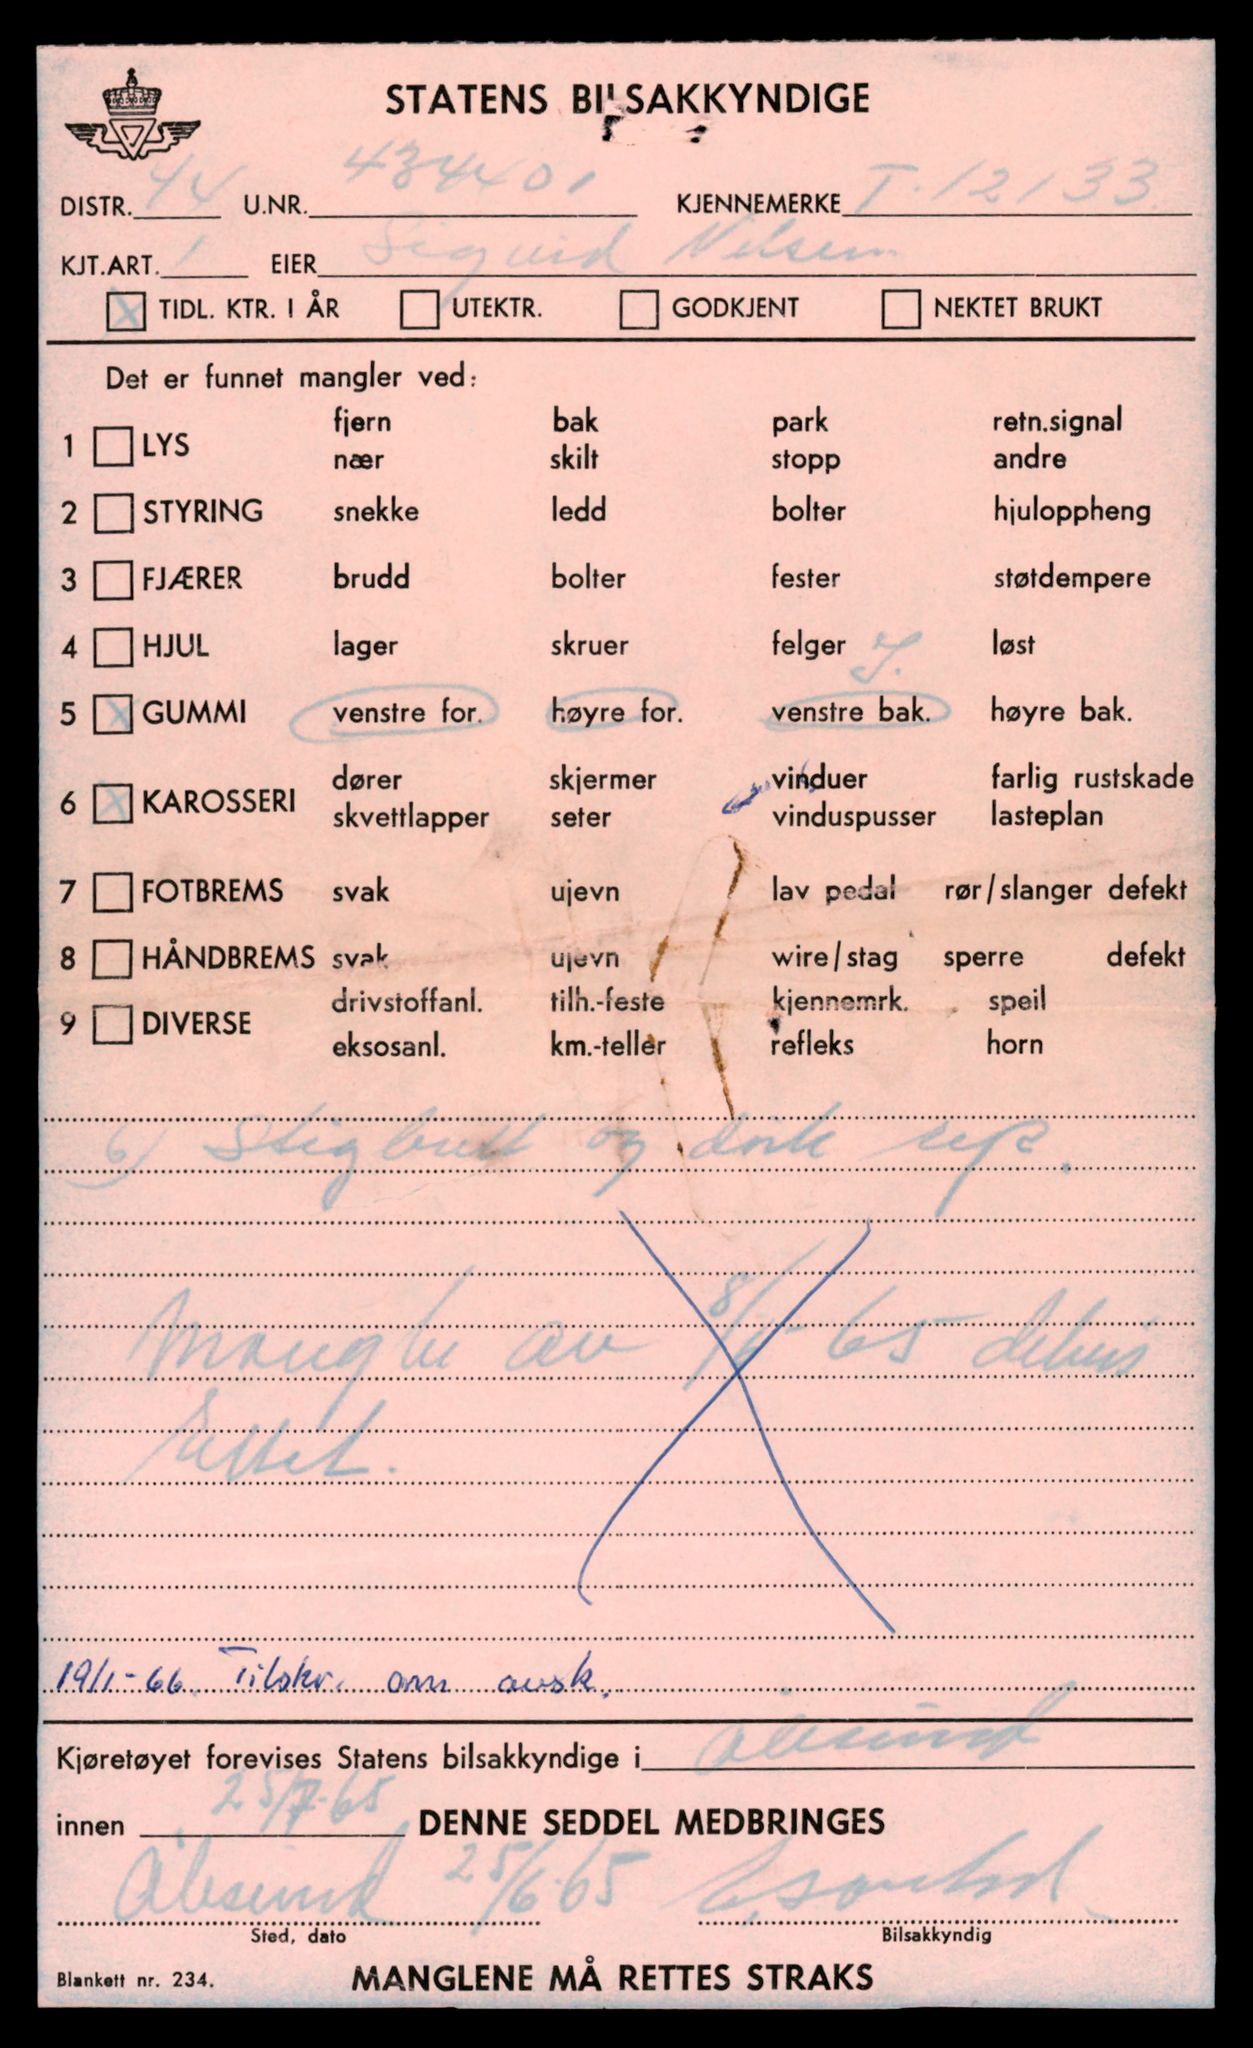 STATENS BILSAKKYNDIGE
DISTR. 44 U.NR. 434401 KJENNEMERKE T-12133
KJT.ART. 1 EIER Sigurd Nilsen
TIDL. KTR. I ÅR UTEKTR. GODKJENT NEKTET BRUKT
Det er funnet mangler ved:
fjern bak park retn.signal
1 LYS
nær skilt stopp andre
2 STYRING snekke ledd bolter hjuloppheng
3 FJÆRER brudd bolter fester støtdempere
4 HJUL lager skruer felger løst
5 GUMMI venstre for. høyre for. venstre bak. høyre bak.
dører skjermer vinduer farlig rustskade
6 KAROSSERI
skvettlapper seter vinduspusser lasteplan
7 FOTBREMS svak ujevn lav pedal rør/slanger defekt
8 HÅNDBREMS svak ujevn wire/stag sperre defekt
drivstoffanl. tilh.-feste kjennemrk. speil
9 DIVERSE
eksosanl. km.-teller refleks horn
6) Stigbrett og dørk rep.
av 65
19/1-66. Tilskr. om avsk.
Kjøretøyet forevises Statens bilsakkyndige i Ålesund
innen 25/7-65 DENNE SEDDEL MEDBRINGES
Ålesund 25/6-65
Sted, dato Bilsakkyndig
Blankett nr. 234. MANGLENE MÅ RETTES STRAKS